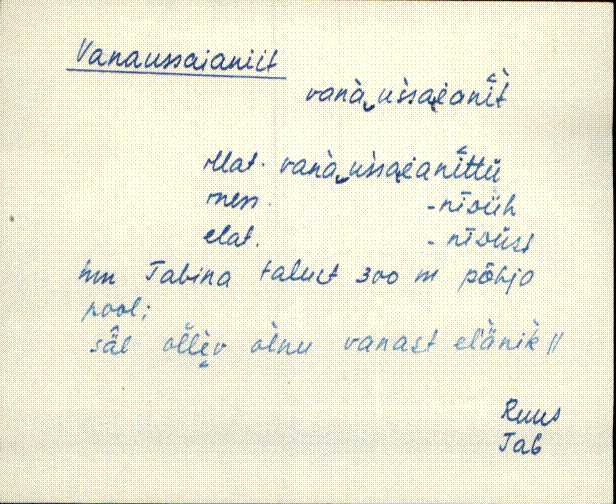 Vanaussaianiit
vanà‿ussa̬ianī̀t
illat. vanà‿ussa̬ianīttü
iness. -nīsüh
elat. -nīsüst
hm Tabina talust 300 m põhjo
pool;
sä̂l õ̂llev õ̀lnu vanast elä̀nik̀ //
Ruus
Tab